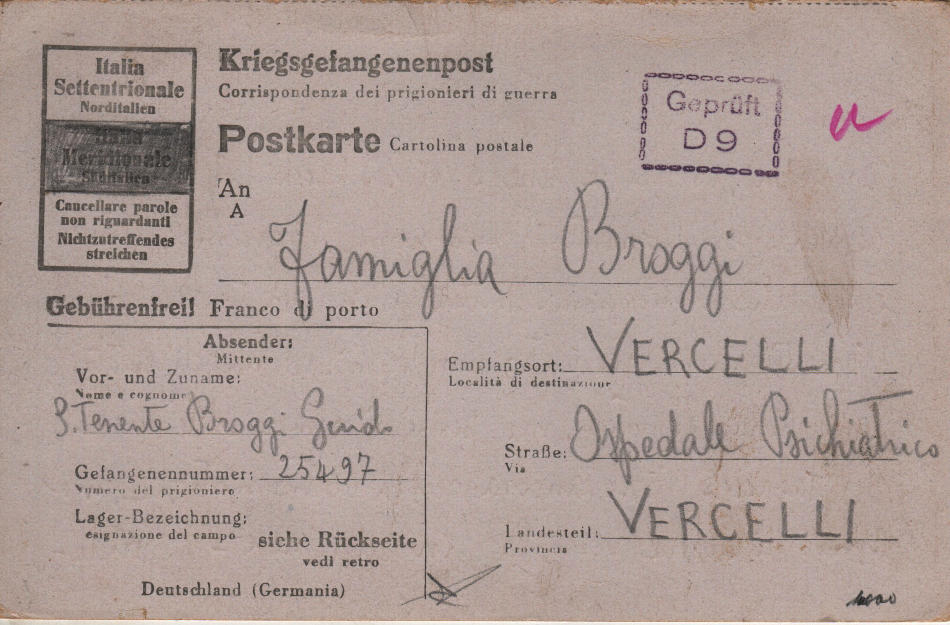 Italia
Settentrionale
Norditalien
Italia
Meridionale
Süditalien
Cancellare parole
non riguardanti
Nichtzutreffendes
streichen
Kriegsgefangenenpost
Corrispondenza dei prigionieri di guerra
Postkarte Cartolina postale
Geprüft
D 9
An
A
Famiglia Broggi
Gebührenfrei! Franco di porto
Absender:
Mittente
Vor- und Zuname:
Nome e cognome
S. Tenente Broggi Guido
Gefangenennummer: 25497
Numero del prigioniero
Lager-Bezeichnung:
esignazione del campo
siehe Rückseite
vedi retro
Deutschland (Germania)
Empfangsort: VERCELLI
Località di destinazione
Straße: Ospedale Psichiatrico
Via
Landesteil: VERCELLI
Provincia